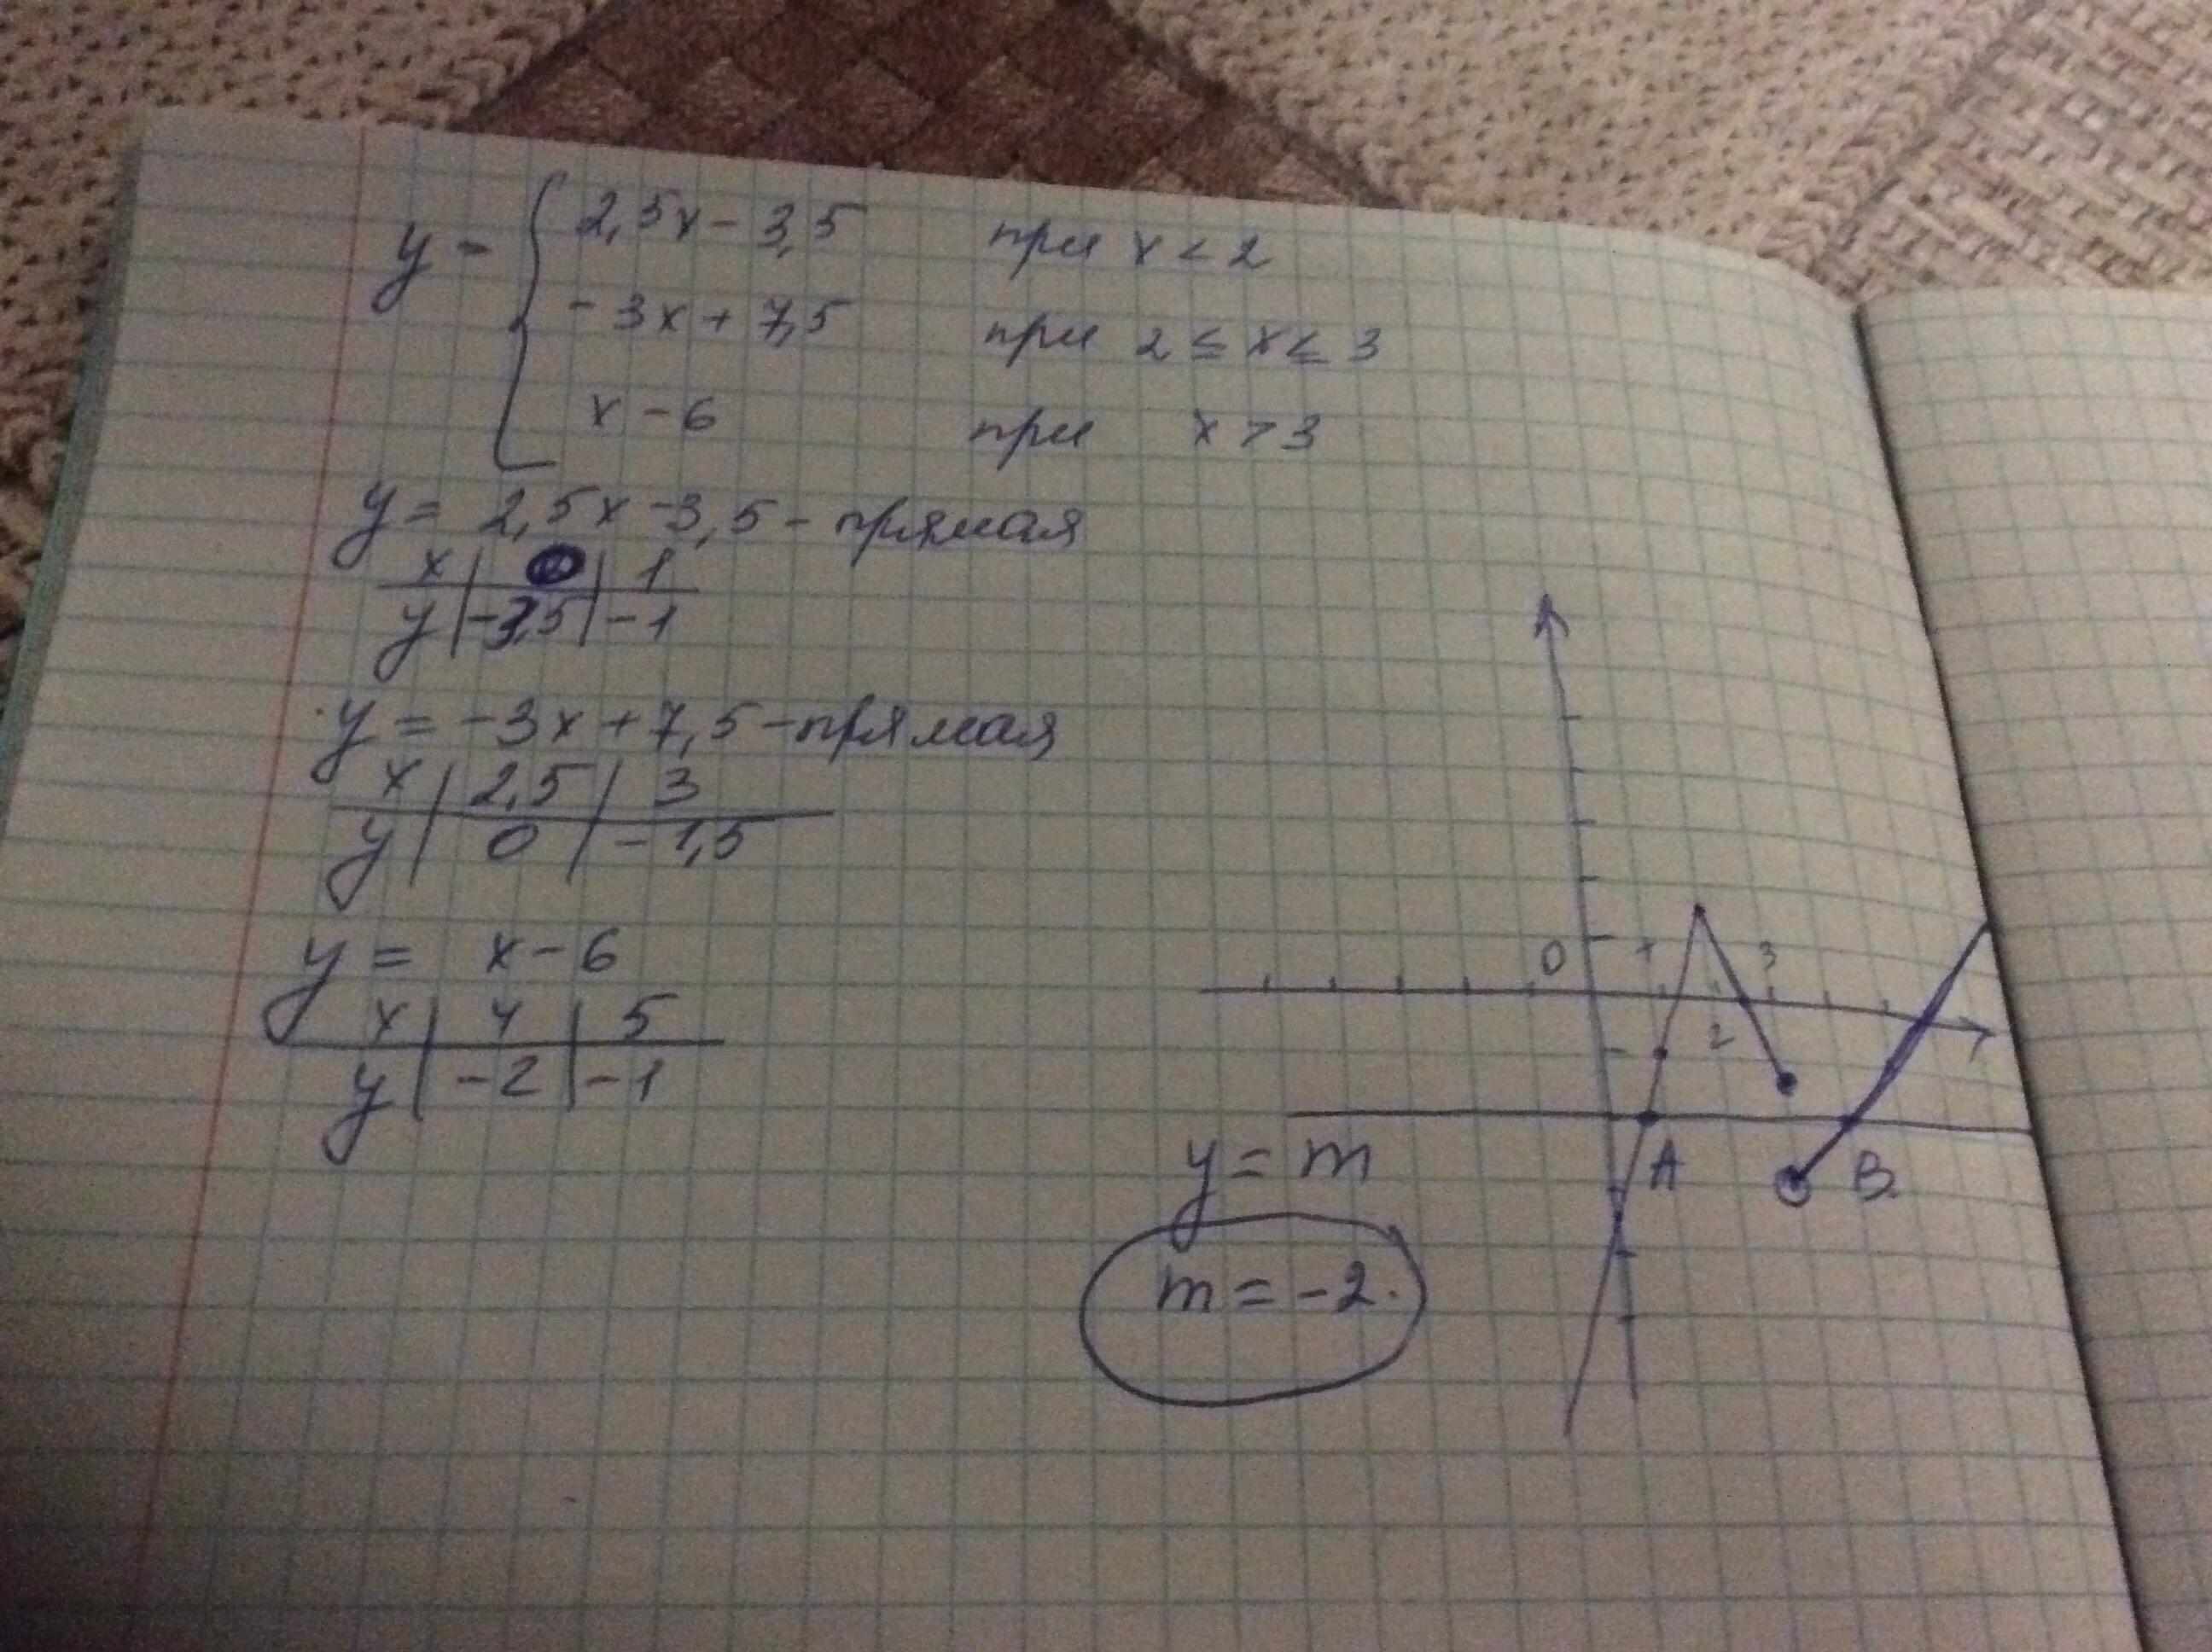 y = { 2,5x - 3,5 при x < 2
- 3x + 7,5 при 2 ≤ x ≤ 3
x - 6 при x > 3
y = 2,5x - 3,5 - прямая
x | 0 | 1
y | -3,5 | -1
y = -3x + 7,5 - прямая
x | 2,5 | 3
y | 0 | -1,5
y = x - 6
x | 4 | 5
y | -2 | -1
0 1 3
2
A B.
y = m
m = -2.